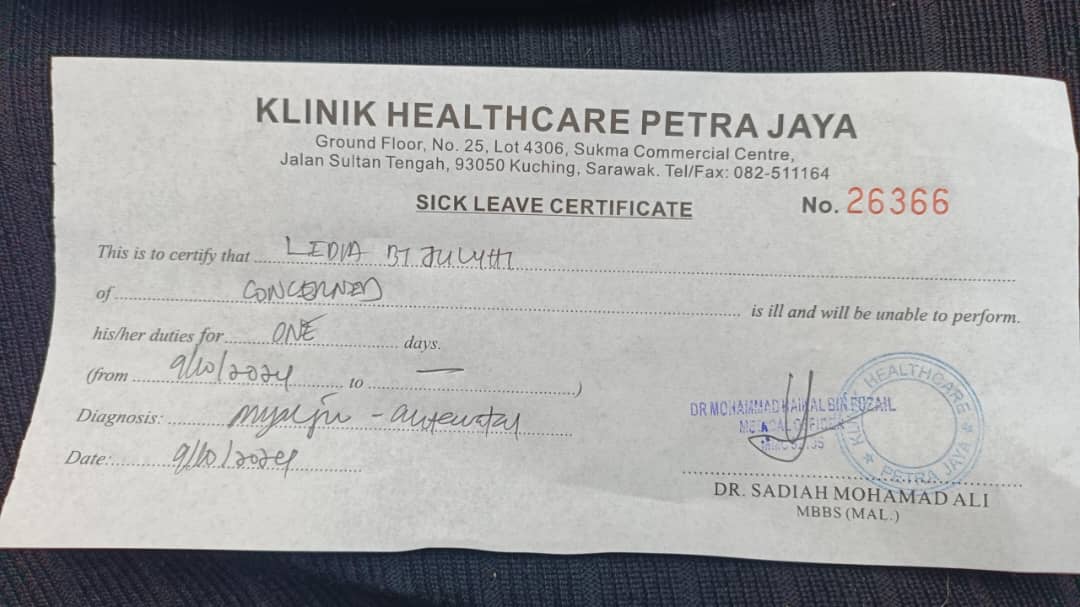 KLINIK HEALTHCARE PETRA JAYA
Ground Floor, No. 25, Lot 4306, Sukma Commercial Centre,
Jalan Sultan Tengah, 93050 Kuching, Sarawak. Tel/Fax: 082-511164
SICK LEAVE CERTIFICATE No. 26366
This is to certify that LEDIA BT
of CONCERNED is ill and will be unable to perform.
his/her duties for ONE days.
(from 9/10/2024 to — )
Diagnosis:
Date: 9/10/2024
DR MOHAMMAD HAIKAL BIN
MEDICAL OFFICER
KLINIK HEALTHCARE
PETRA JAYA
DR. SADIAH MOHAMAD ALI
MBBS (MAL.)